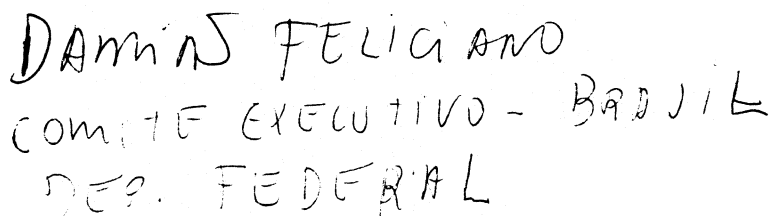 DAMIÃO FELICIANO
COMITE EXECUTIVO - BRASIL
DEP. FEDERAL